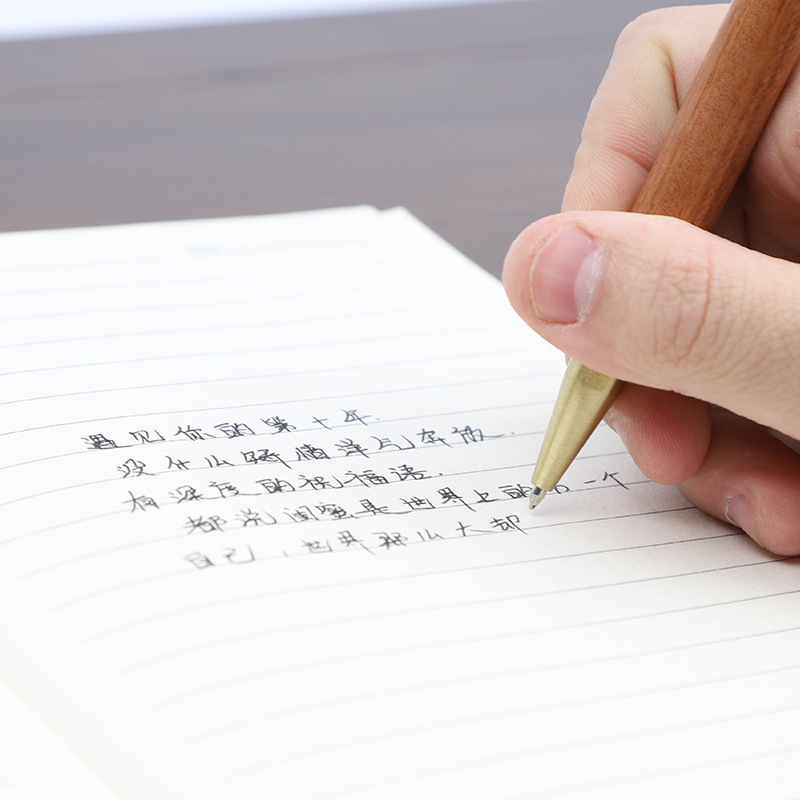 遇见你的第十年.
没什么矫情洋气在放.
有深度的祝福语.
都说闺蜜是世界上的另一个
自己,世界那么大却